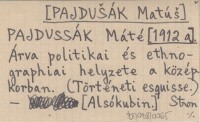 [PAJDUŠÁK Matúš]
PAJDUSSÁK Máté [1912 a].
Árva politikai és ethno-
graphiai helyzete a közép-
korban. (Történeti esquisse.)
— [Alsókubin.] Stron